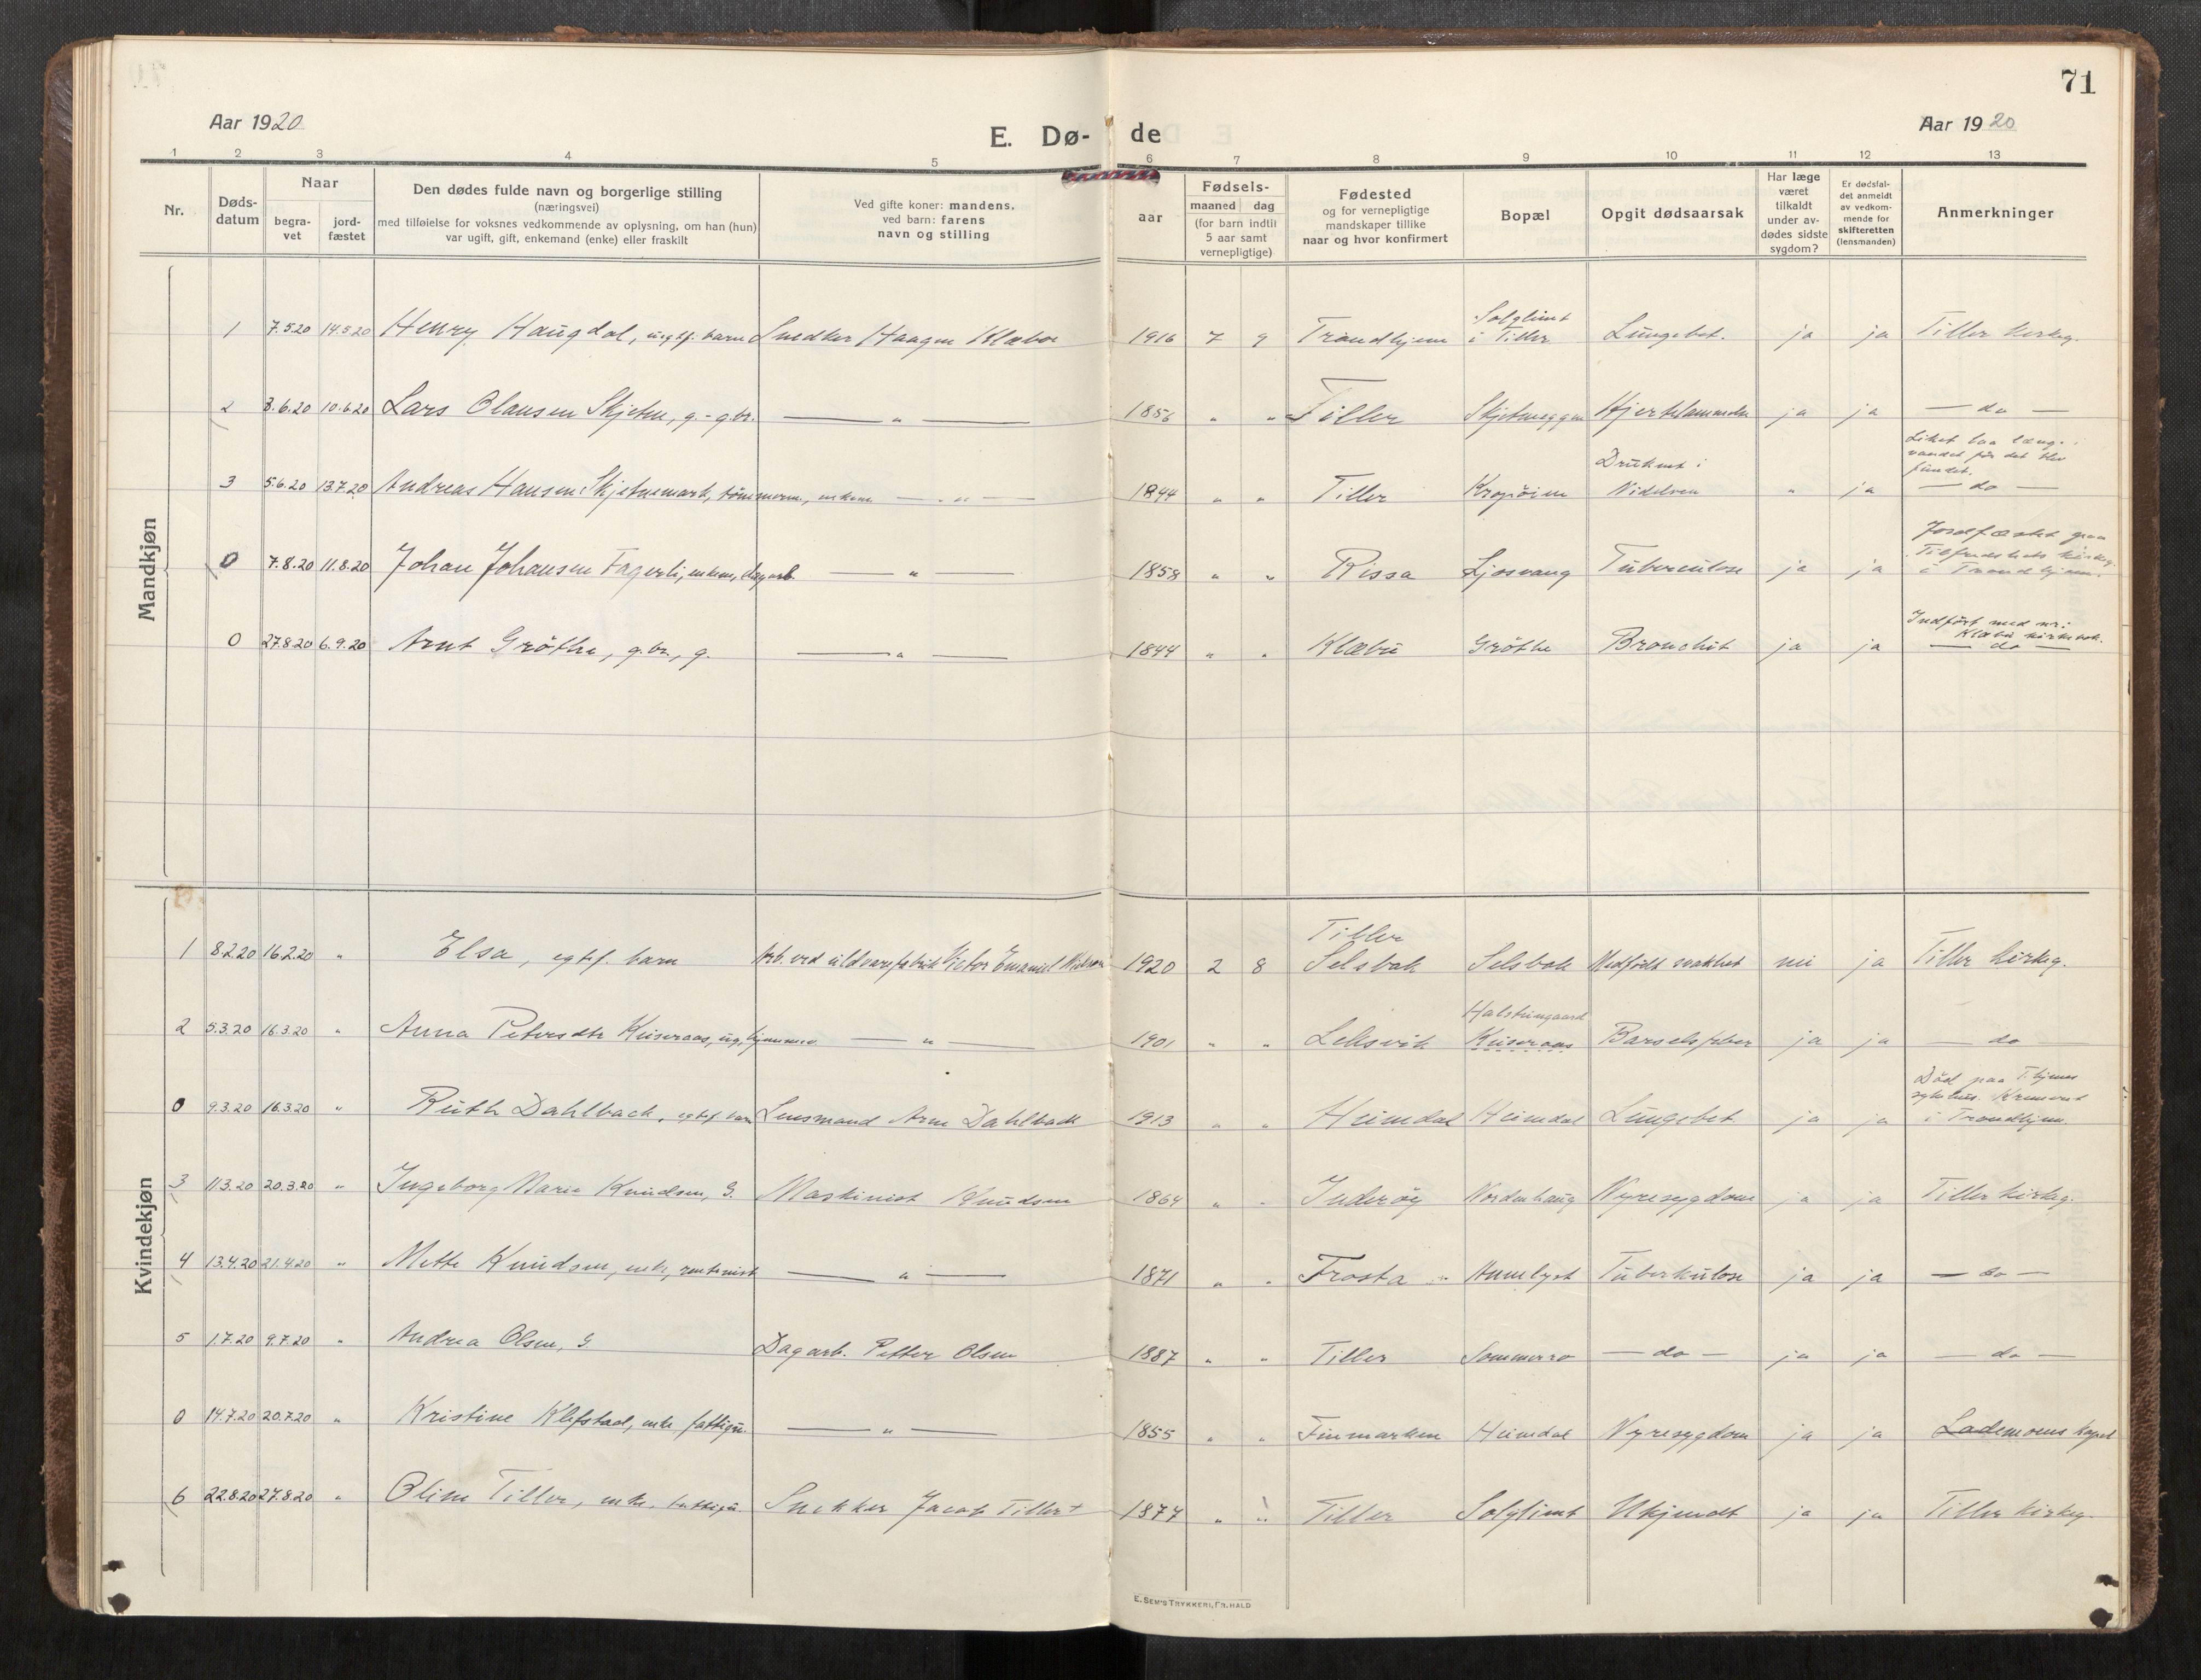 71
Aar 1920
E. Dø- de
Aar 1920
1 2 3 4 5 6 7 8 9 10 11 12 13
Nr.
Døds-
datum
Naar
begra-
vet
jord-
fæstet
Den dødes fulde navn og borgerlige stilling
(næringsvei)
med tilføielse for voksnes vedkommende av oplysning, om han (hun)
var ugift, gift, enkemand (enke) eller fraskilt
Ved gifte koner: mandens,
ved barn: farens
navn og stilling
aar
Fødsels-
maaned dag
(for barn indtil
5 aar samt
vernepligtige)
Fødested
og for vernepligtige
mandskaper tillike
naar og hvor konfirmert
Bopæl
Opgit dødsaarsak
Har læge
været
tilkaldt
under av-
dødes sidste
sygdom?
Er dødsfal-
det anmeldt
av vedkom-
mende for
skifteretten
(lensmanden)
Anmerkninger
Mandkjøn
Solglimt
1 7.5.20 14.5.20 Henry Haugdal, uegtf. barn Snedker Haagen Klæbo 1916 7 9 Trondhjem i Tiller Lungebet. ja ja Tiller kirkeg.
2 8.6.20 10.6.20 Lars Olausen Skjetne, g. - g.br. — " — 1856 " " Tiller ja ja — do —
Liket laa længe i
vandet før det blev
fundet.
Druknet i
3 5.6.20 13.7.20 Andreas Hansen Skjetnemark, tømmerm., enkem. — " — 1844 " " Tiller Nidelven " ja — do —
Jordfæstet paa
Tilfredshets kirkeg.
i Trondhjem.
0 7.8.20 11.8.20 Johan Johansen Fagerli, enkem., dagarb. — " — 1858 " " Rissa Ljosvang Tuberculose ja ja
Indført med nr. i
Klæbu kirkebok.
0 27.8.20 6.9.20 Arnt Grøthe, g.br., g. — " — 1844 " " Klæbu Grøthe Bronchit ja ja — do —
Kvindekjøn
Tiller
1 8.2.20 16.2.20 " Elsa, egtf. barn Arb. ved uldvarefabrik Victor Emanuel 1920 2 8 Selsbak Selsbak Medfødt svakhet nei ja Tiller kirkeg.
Halsteingaard
2 5.3.20 16.3.20 " Anna Petersdtr Keiseraas, ug., hjemmev. — " — 1901 " " Leksvik Keiseraas Barselfeber ja ja — do
Død paa T.hjems
sykehus. Kremert
i Trondhjem.
0 9.3.20 16.3.20 " Ruth Dahlback, egtf. barn Lensmand Arne Dahlback 1913 " " Heimdal Heimdal Lungebet. ja ja
3 11.3.20 20.3.20 " Ingeborg Marie Knudsen, G. Maskinist Knudsen 1864 " " Inderøy Nordenhaug Nyresygdom ja ja Tiller kirkeg.
4 13.4.20 21.4.20 " Mette Knudsen, enke, rentenist — " — 1871 " " Frosta Humlyst Tuberkulose ja ja — do —
5 1.7.20 9.7.20 " Andrea Olsen, G. Dagarb. Petter Olsen 1887 " " Tiller Sommerro — do — ja ja — do —
0 14.7.20 20.7.20 " Kristine Klefstad, enke, fattigu. — " — 1855 " " Finmarken Heimdal Nyresygdom ja ja Lademoens kapel
6 22.8.20 27.8.20 " Oline Tiller, enke, fattigu. Snekker Jacob Tiller + 1877 " " Tiller Solglimt Ukjendt ja ja Tiller kirkeg.
E. SEM'S TRYKKERI, FR.HALD